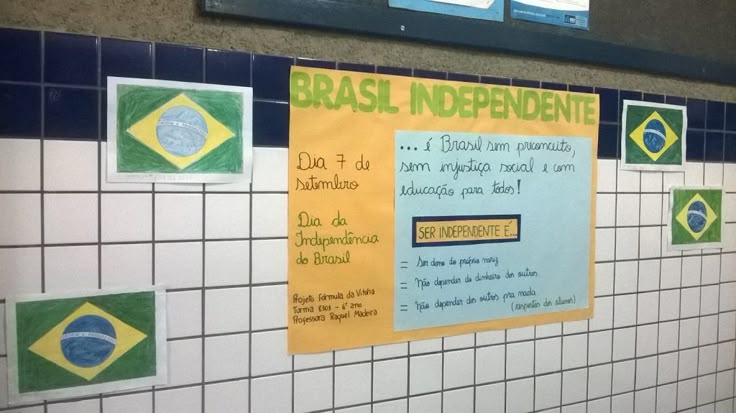 BRASIL INDEPENDENTE
Dia 7 de
setembro
Dia da
Independência
do Brasil
Projeto Fórmula da Vitória
Turma - 6º ano
Professora Raquel Madeira
... é Brasil sem preconceito,
sem injustiça social e com
educação para todos!
SER INDEPENDENTE É...
= Ser dono do próprio nariz
= Não depender do dinheiro dos outros
= Não depender dos outros pra nada
(respostas dos alunos)